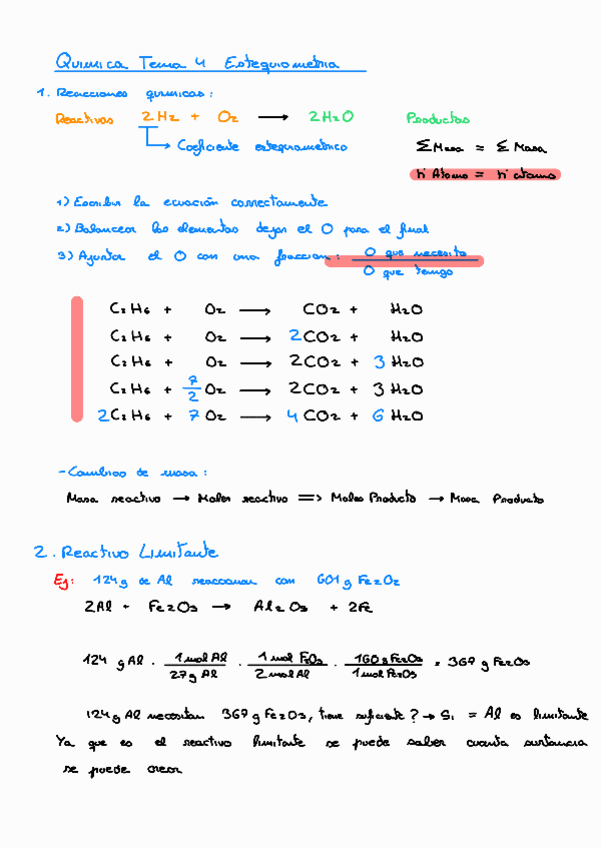 Quimica Tema 4 Estequiometria
1. Reacciones quimicas:
Reactivos 2H2 + O2 → 2H2O Productos
Coeficiente estequiometrico Σ Masa = Σ Masa
nº Atomo = nº atomo
1) Escribir la ecuación correctamente
2) Balancear los elementos dejar el O para el final
3) Ajustar el O con una fraccion: O que necesito / O que tengo
C2H6 + O2 → CO2 + H2O
C2H6 + O2 → 2CO2 + H2O
C2H6 + O2 → 2CO2 + 3H2O
C2H6 + 7/2 O2 → 2CO2 + 3H2O
2C2H6 + 7O2 → 4CO2 + 6H2O
- Cambios de masa:
Masa reactivo → Moles reactivo => Moles Producto → Masa Producto
2. Reactivo Limitante
Ej: 124g de Al reaccionan con 601g Fe2O2
2Al + Fe2O3 → Al2O3 + 2Fe
124 g Al · 1 mol Al / 27g Al · 1 mol Fe2O3 / 2 mol Al · 160 g Fe2O3 / 1 mol Fe2O3 = 367 g Fe2O3
124g Al necesitan 367g Fe2O3, tiene suficiente? → Si = Al es limitante
Ya que es el reactivo limitante se puede saber cuanta sustancia
se puede crear